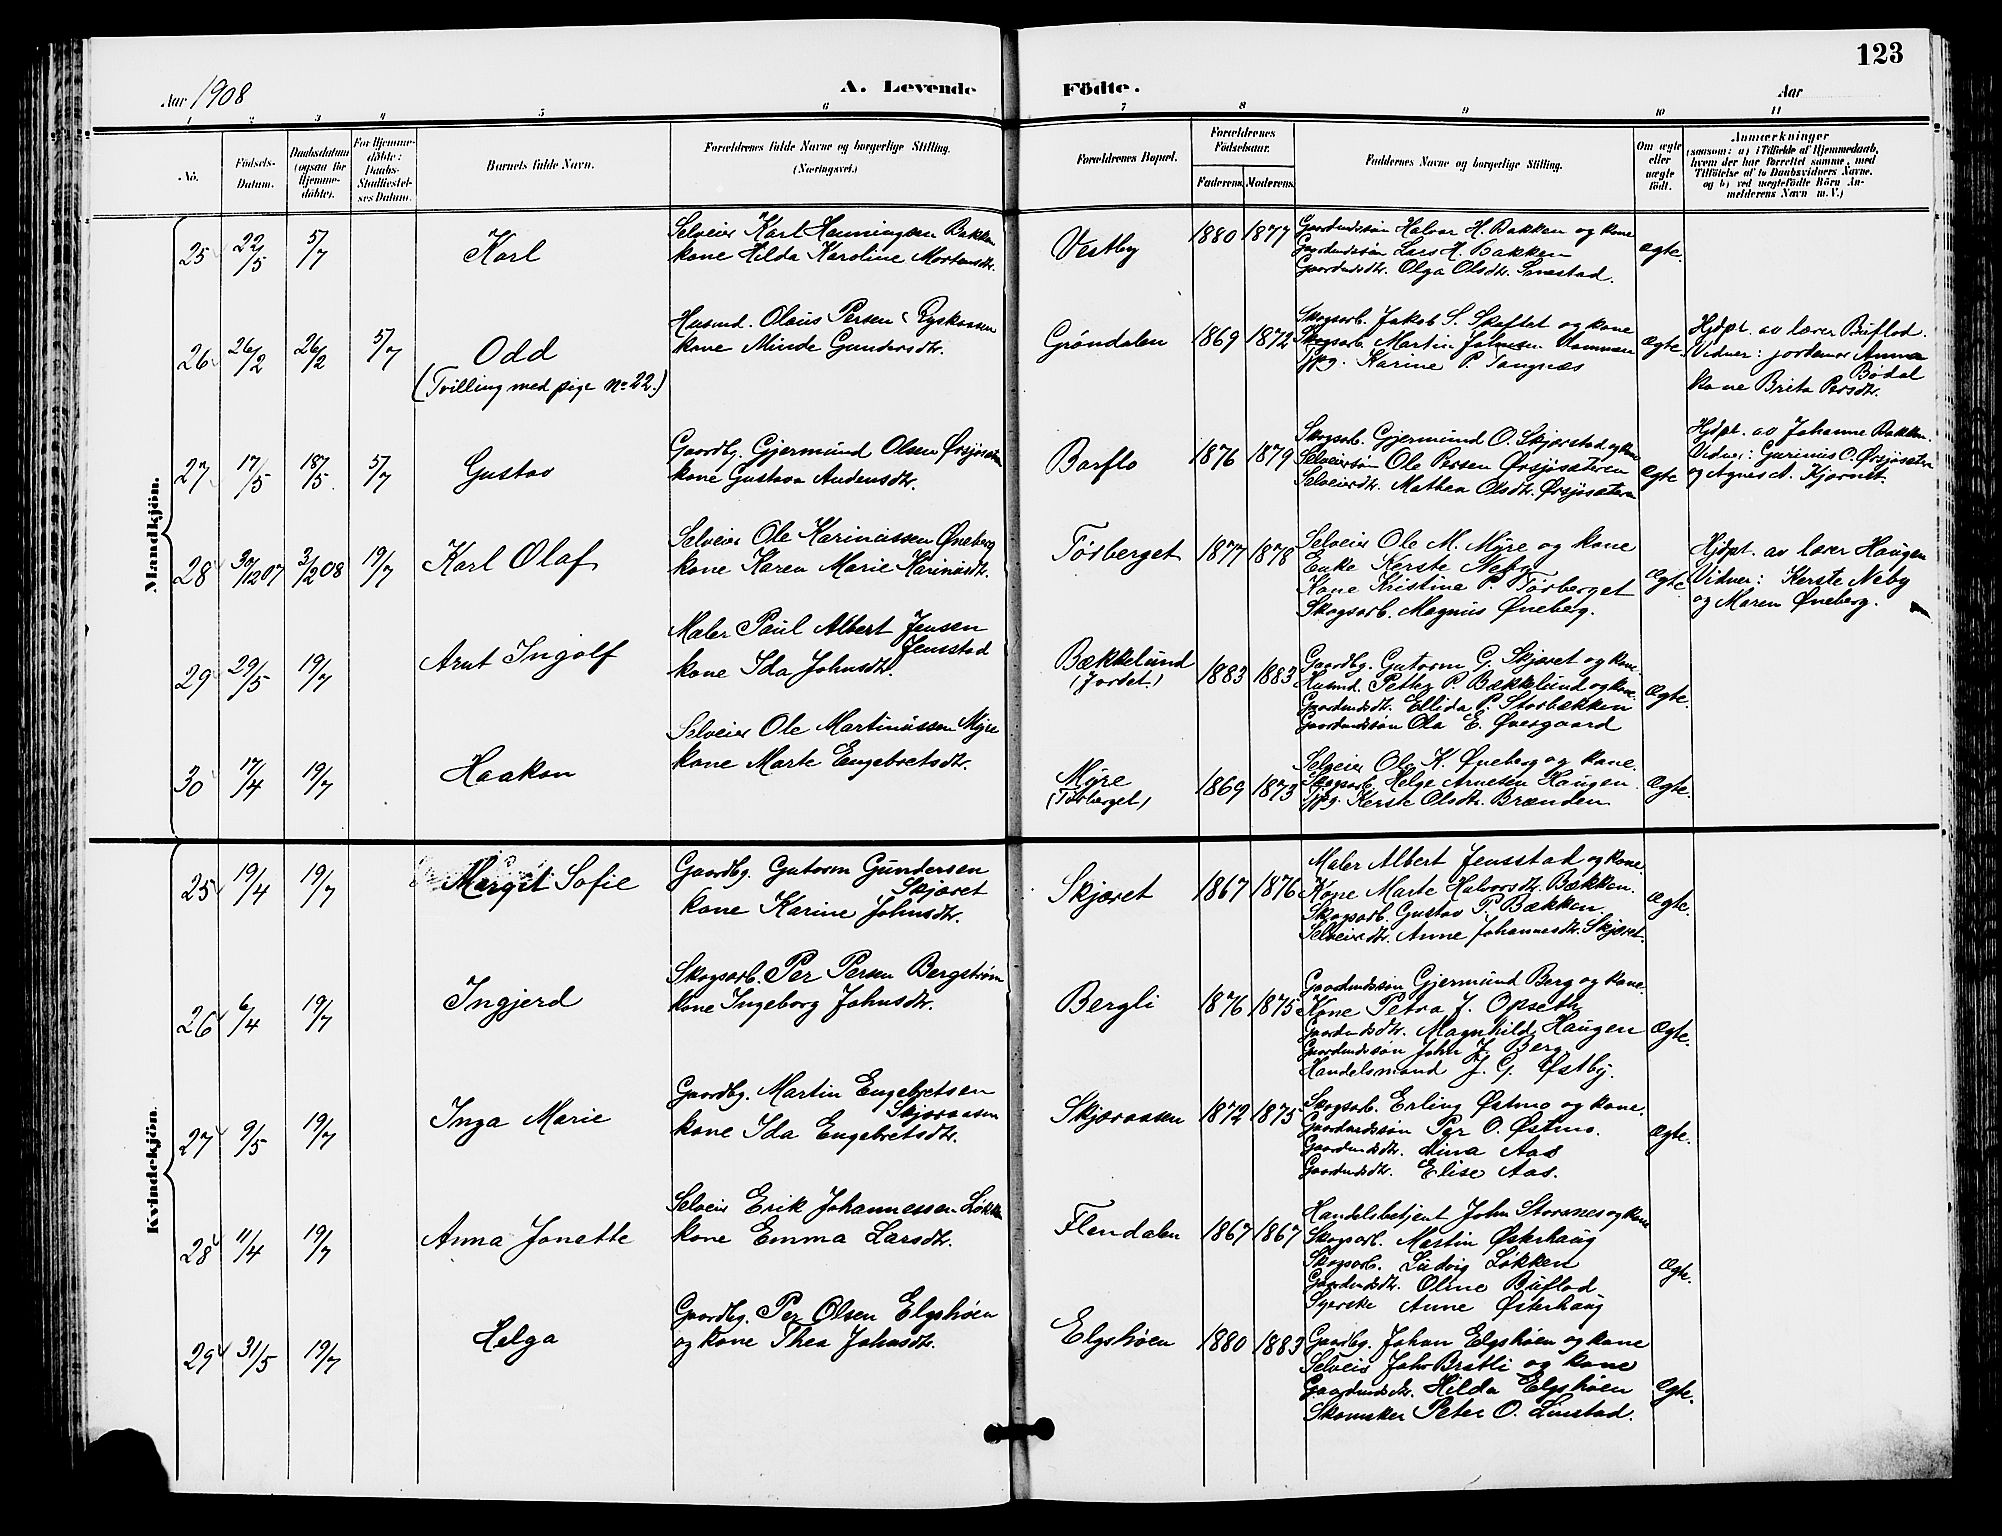 123
Aar 1908
A. Levende
Födte.
Aar
1 2 3 4 5 6 7 8 9 10 11
No. Födsels-Datum. Daabsdatum (ogsaa for Hjemmedöbte). For Hjemmedöbte: Daabs-Stadfæstelses Datum. Barnets fulde Navn. Forældrenes fulde Navne og borgerlige Stilling. (Næringsvei.)
Forældrenes Bopæl. Forældrenes Födselsaar. Faderens. Moderens. Faddernes Navne og borgerlige Stilling. Om ægte eller uægte födt.
Anmærkninger
(saasom: a) i Tilfælde af Hjemmedaab,
hvem der har forrettet samme, med
Tilföielse af to Daabsvidners Navne,
og b) ved uægtefödte Börn An-
melderens Navn m.V.)
Mandkjön.
25 22/5 5/7 Karl
Selveier Karl Henningsen Bakken
kone Hilda Karoline Mortensdtr.
Vestby 1880 1877
Gaardmdssøn Halvor H. Bakken og kone
Gaardmdssøn Lars H. Bakken
Gaardmdsdtr. Olga Olsdtr. Snestad.
Ægte.
26 26/2 26/2 5/7 Odd
(Tvilling med pige No 22.)
Husmd. Olaus Persen Ryskaasen
kone Minda Gundersdtr.
Grøndalen 1869 1872
Skogsarb. Jakob S. Skeftet og kone
Skogsarb. Martin Johnsen Nammen
Tjpg. Karine P. Tangnæs
Ægte.
Hjdpt. av lærer Buflod.
Vidner: jordemor Anna
Bødal
kone Brita Persdtr.
27 17/5 18/5. 5/7 Gustav
Gaardbg. Gjermund Olsen Ørsjøsæteren
kone Gustava Audensdtr.
Barflo 1876 1879
Skogsarb. Gjermund O. Skjærstad og kone
Selveiersøn Ole Persen Ørsjøsæteren
Selveierdtr. Mathea Olsdtr. Ørsjøsæteren
Ægte
Hjdpt. av Johanne Bakken.
Vidner: Gurinus O. Ørsjøsæteren
og Agnes A. Kjernet.
28 30/12 07 3/2 08 19/7 Karl Olaf
Selveier Ole Karinussen Øneberg
kone Karen Marie Karinusdtr.
Tørberget 1877 1878
Selveier Ole M. Myre og kone
Enke Kerste Neby
Kone Kristina P. Tørberget
Skogsarb. Magnus Øneberg.
Ægte
Hjdpt. av lærer Haugen
Vidner: Kerste Neby
og Maren Øneberg.
29 29/5 19/7 Arnt Ingolf
Maler Paul Albert Jensen
Jensstad
kone Ida Johnsdtr.
Bækkelund
(Jordet.) 1883 1883
Gaardbg. Gutorm G. Skjæret og kone.
Husmd. Petter P. Bækkelund og kone.
Gaardmdsdtr. Ellida P. Storbækken
Gaardmdssøn Ola E. Øvergaard
Ægte.
30 17/4 19/7 Haakon
Selveier Ole Martinussen Myre
kone Marte Engebretsdtr.
Myre
(Tørberget) 1869 1873
Selveier Ole K. Øneberg og kone.
Skogsarb. Helge Arnesen Haugen
Tjpg. Kerste Olsdtr. Brænden
Ægte.
Kvindekjön.
25 19/4 19/7 Margit Sofie
Gaardbg. Gutorm Gundersen
Skjæret
kone Karine Johnsdtr.
Skjæret 1867 1876
Maler Albert Jensstad og kone.
Kone Marte Halvorsdtr. Bækken.
Skogsarb. Gustav P. Bækken
Selveierdtr. Anne Johannesdtr. Skjæret.
Ægte.
26 6/4 19/7 Ingjerd
Skogsarb. Per Persen Bergstrøm
kone Ingeborg Johnsdtr.
Bergli 1876 1875
Gaardmdssøn Gjermund Berg og kone.
Kone Petra J. Opseth
Gaardmdsdtr. Magnhild Haugen
Gaardmdssøn John J. Berg
Handelsmand J. G. Østby.
Ægte.
27 9/5 19/7 Inga Marie
Gaardbg. Martin Engebretsen
Skjæraasen
kone Ida Engebretsdtr.
Skjæraasen 1872 1875
Skogsarb. Erling Østmo og kone.
Gaardmdssøn Per O. Østmo.
Gaardmdsdtr. Lina Aas
Gaardmdsdtr. Elise Aas.
Ægte.
28 11/4 19/7 Anna Jonette
Selveier Erik Johannessen Løkken
kone Emma Larsdtr.
Flendalen 1867 1867
Handelsbetjent John Storenes og kone
Skogsarb. Martin Østerhaug
Skogsarb. Ludvig Løkken
Gaardmdsdtr. Oline Buflod
Syerske Anne Østerhaug
Ægte.
29 31/5 19/7 Helga
Gaardbg. Per Olsen Elgshøen
og kone Thea Johnsdtr.
Elgshøen 1880 1883
Gaardbg. Johan Elgshøen og kone
Selveier Johs Bratli og kone
Gaardmdsdtr. Hilda Elgshøen
Skomaker Peter O. Linstad.
Ægte.